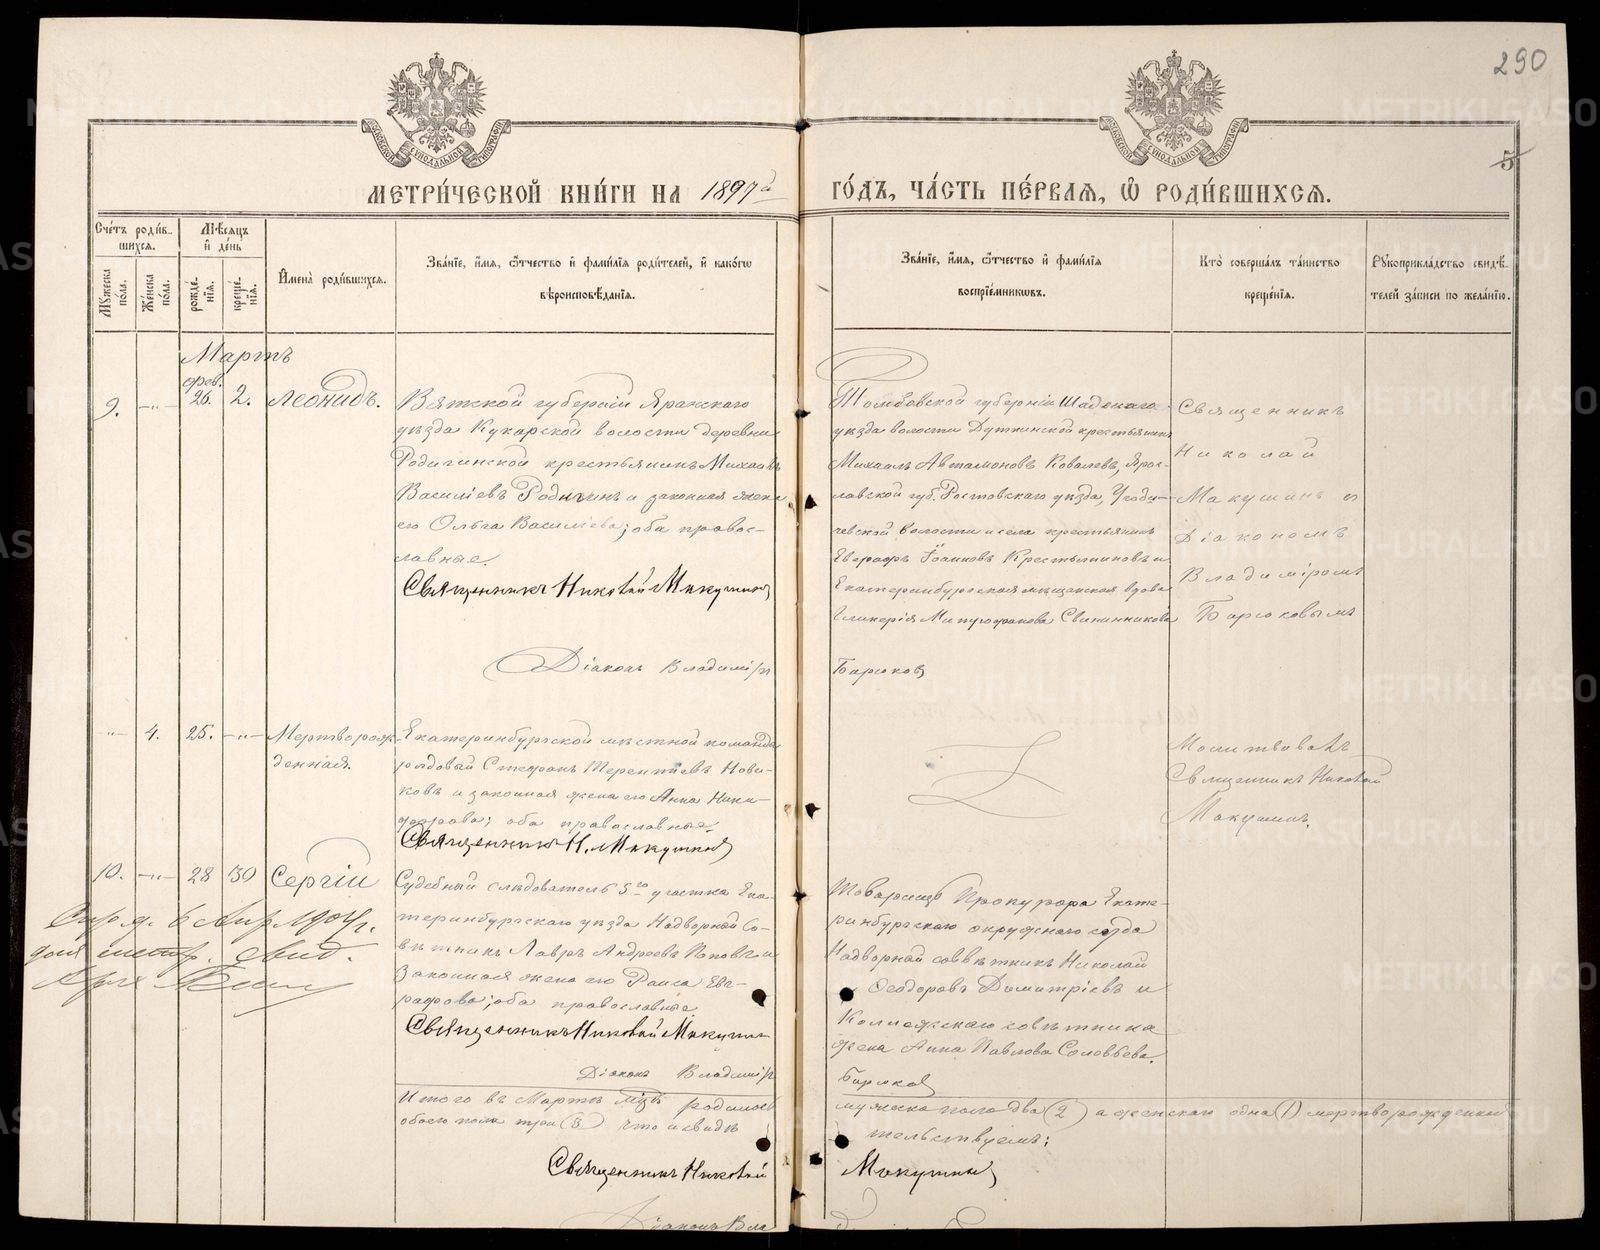 290
5
МОСКОВСКОЙ СѴНОДАЛЬНОЙ ТИПОГРАФІИ
МОСКОВСКОЙ СѴНОДАЛЬНОЙ ТИПОГРАФІИ
МЕТРИ́ЧЕСКОЙ КНИ́ГИ НА 1897й
ГО́ДЪ, ЧА́СТЬ ПЕ́РВАЯ, Ѽ РОДИ́ВШИХСЯ.
Сче́тъ роди́в-
шихся.
Мꙋ́жеска по́ла.
Же́нска по́ла.
Мѣ́сяцъ
и҆ де́нь
рожде́-
нїя.
креще́-
нїя.
И҆мена̀ роди́вшихся.
Зва́нїе, и҆́мя, ѻ҆́тчество и҆ фами́лїя роди́телей, и҆ како́гѡ
вѣроисповѣ́данїя.
Зва́нїе, и҆́мя, ѻ҆́тчество и҆ фами́лїя
воспрїе́мникѡвъ.
Кто̀ соверша́лъ та́инство
креще́нїя.
Рꙋкоприкла́дство свидѣ́-
телей за́писи по жела́нїю.
Мартъ
9.
-"-
фев.
26.
2.
Леонидъ.
Вятской губерніи Яранскаго
уѣзда Кукарской волости деревни
Родигинской крестьянинъ Михаилъ
Василіевъ Родигинъ и законная жена
его Ольга Василіева; оба правос-
лавные.
Священникъ Николай Макушинъ
Діаконъ Владиміръ
Тамбовской губерніи Шадскаго
уѣзда волости крестьянинъ
Михаилъ Автамоновъ Ковалевъ, Ярос-
лавской губ. Ростовскаго уѣзда, Угоди-
чевской волости и села крестьянинъ
Евграфъ Іоанновъ Крестьяниновъ и
Екатеринбургская мѣщанская вдова
Гликерія Свининникова
Бирюковъ
Священникъ
Николай
Макушинъ съ
Діакономъ
Владиміромъ
Бирюковымъ
-"-
4.
25.
-"-
Мертворож-
денная.
Екатеринбургской мѣстной команды
рядовый Стефанъ Терентіевъ Нови-
ковъ и законная жена его Анна Ники-
форова; оба православные.
Священникъ Н. Макушинъ
Молитвовалъ
Священникъ Николай
Макушинъ.
10.
-"-
28
30
Сергій
Судебный слѣдователь 5го участка Ека-
теринбургскаго уѣзда Надворный Со-
вѣтникъ Лавръ Андреевъ Поповъ и
законная жена его Раиса Евг-
рафова; оба православные
Священникъ Николай Макушинъ
Діаконъ Владиміръ
Товарищъ Прокурора Екате-
ринбургскаго окружнаго суда
Надворный совѣтникъ Николай
Ѳеодоровъ Димитріевъ и
Коллежскаго совѣтника
жена Анна Павлова Соловьева.
Бирюковъ
6 Апр.
метр. свид.
Итого въ Мартѣ мцѣ родилось
мужеска пола два (2) а женскаго одна (1) мертворожденной
обоего пола три (3) Что и свидѣ
тельствуемъ:
Священникъ Николай
Макушинъ
Діаконъ Вла
METRIKI.GASO-URAL.RU